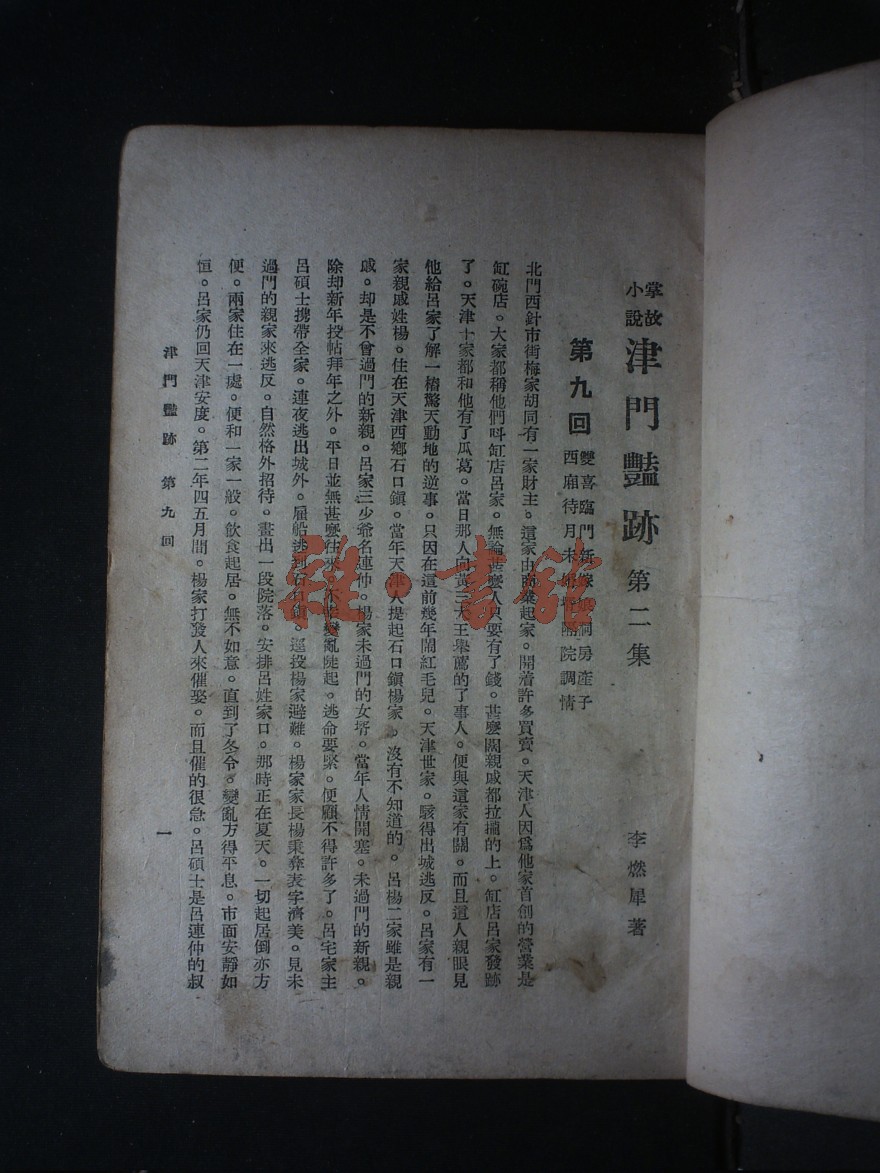 掌故小說 津門豔跡 第二集
李燃犀著
第九回 雙喜臨門新嫁娘洞房產子
西廂待月未 院調情
北門西針市街梅家胡同有一家財主。這家由商業起家。開着許多買賣。天津人因爲他家首創的營業是
缸碗店。大家都稱他們呌缸店呂家。無論甚麼人只要有了錢。甚麼闊親戚都拉攏的上。缸店呂家發跡
了。天津十家都和他有了瓜葛。當日那人向黃三大王舉薦的了事人。便與這家有關。而且這人親眼見
他給呂家了解一樁驚天動地的逆事。只因在這前幾年鬧紅毛兒。天津世家。駭得出城逃反。呂家有一
家親戚姓楊。住在天津西鄉石口鎭。當年天津人提起石口鎭楊家。沒有不知道的。呂楊二家雖是親
戚。却是不曾過門的新親。呂家三少爺名連仲。楊家未過門的女壻。當年人情開塞。未過門的新親。
除却新年投帖拜年之外。平日並無甚麼往來。 變亂陡起。逃命要緊。便顧不得許多了。呂宅家主
呂碩士携帶全家。連夜逃出城外。雇船逃到石口鎭。逕投楊家避難。楊家家長楊秉彝表字濟美。見未
過門的親家來逃反。自然格外招待。畫出一段院落。安排呂姓家口。那時正在夏天。一切起居倒亦方
便。兩家住在一處。便和一家一般。飮食起居。無不如意。直到了冬令。變亂方得平息。市面安靜如
恒。呂家仍回天津安度。第二年四五月間。楊家打發人來催娶。而且催的很急。呂碩士是呂連仲的叔
津門豔跡 第九回 一
雜·書館